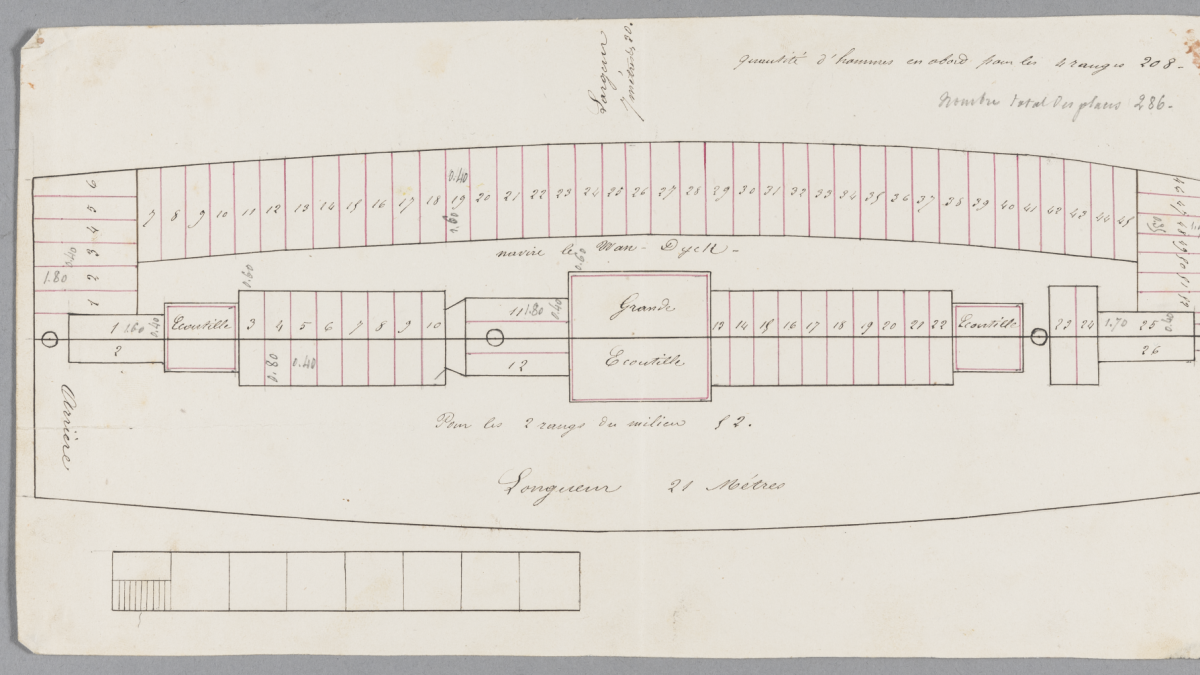 Largeur
7 mètres 20.
quantité d'hommes en abord pour les 4 ranges 208 -
Nombre total des places 286 -
6
5
4
3
2
1
0.40
1.80
7 8 9 10 11 12 13 14 15 16 17 18 19 20 21 22 23 24 25 26 27 28 29 30 31 32 33 34 35 36 37 38 39 40 41 42 43 44 45
0.40
1.80
46
47
48
49
50
51
52
0.35
navire le Wan-Dyck -
1.60
0.60
1 1.60 0.40
2
Ecoutille
3 4 5 6 7 8 9 10
0.80 0.40
11 1.80 0.40
12
Grande
Ecoutille
13 14 15 16 17 18 19 20 21 22
Ecoutille
23 24
1.70 25 0.40
26
Arrière
Pour les 2 rangs du milieu 52.
Longueur 21 Mètres